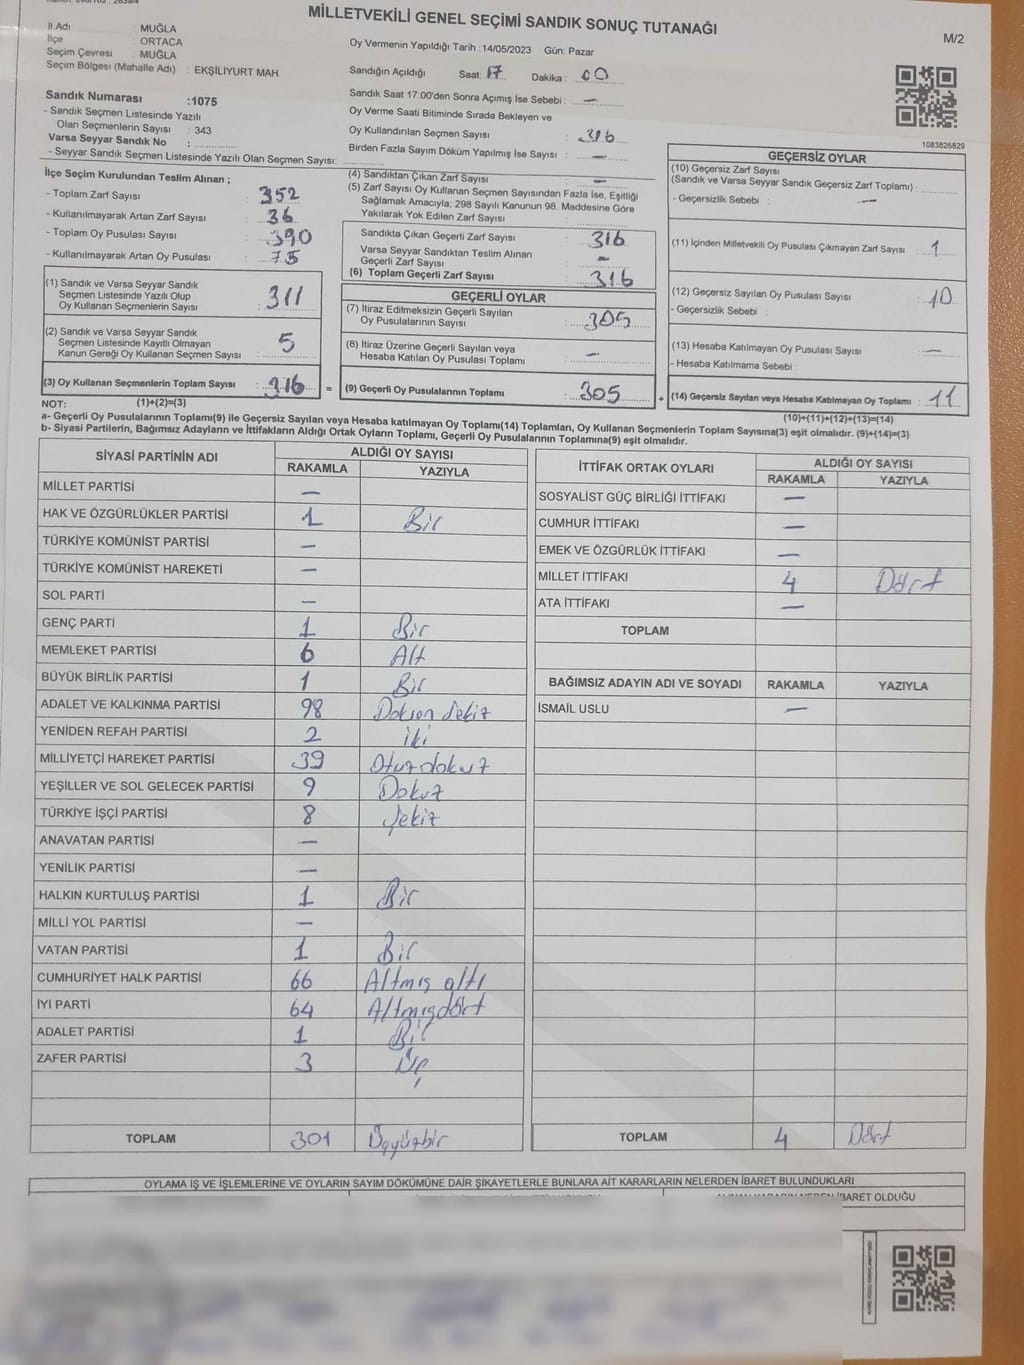 MİLLETVEKİLİ GENEL SEÇİMİ SANDIK SONUÇ TUTANAĞI
M/2
İl Adı : MUĞLA
İlçe : ORTACA
Seçim Çevresi : MUĞLA
Seçim Bölgesi (Mahalle Adı) : EKŞİLİYURT MAH.
Oy Vermenin Yapıldığı Tarih :14/05/2023 Gün: Pazar
Sandığın Açıldığı Saat: 17 Dakika : 00
Sandık Saat 17:00'den Sonra Açımış İse Sebebi : —
Oy Verme Saati Bitiminde Sırada Bekleyen ve
Oy Kullandırılan Seçmen Sayısı : 316
Birden Fazla Sayım Döküm Yapılmış İse Sayısı : —
Sandık Numarası :1075
- Sandık Seçmen Listesinde Yazılı
Olan Seçmenlerin Sayısı : 343
Varsa Seyyar Sandık No :
- Seyyar Sandık Seçmen Listesinde Yazılı Olan Seçmen Sayısı:
1083826829
İlçe Seçim Kurulundan Teslim Alınan ;
- Toplam Zarf Sayısı : 352
- Kullanılmayarak Artan Zarf Sayısı : 36
- Toplam Oy Pusulası Sayısı : 390
- Kullanılmayarak Artan Oy Pusulası : 75
(1) Sandık ve Varsa Seyyar Sandık
Seçmen Listesinde Yazılı Olup
Oy Kullanan Seçmenlerin Sayısı : 311
(2) Sandık ve Varsa Seyyar Sandık
Seçmen Listesinde Kayıtlı Olmayan
Kanun Gereği Oy Kullanan Seçmen Sayısı : 5
(3) Oy Kullanan Seçmenlerin Toplam Sayısı : 316 =
(4) Sandıktan Çıkan Zarf Sayısı : —
(5) Zarf Sayısı Oy Kullanan Seçmen Sayısından Fazla İse, Eşitliği
Sağlamak Amacıyla; 298 Sayılı Kanunun 98. Maddesine Göre
Yakılarak Yok Edilen Zarf Sayısı :
Sandıkta Çıkan Geçerli Zarf Sayısı : 316
Varsa Seyyar Sandıktan Teslim Alınan
Geçerli Zarf Sayısı : —
(6) Toplam Geçerli Zarf Sayısı : 316
GEÇERLİ OYLAR
(7) İtiraz Edilmeksizin Geçerli Sayılan
Oy Pusulalarının Sayısı : 305
(8) İtiraz Üzerine Geçerli Sayılan veya
Hesaba Katılan Oy Pusulası Toplamı : —
(9) Geçerli Oy Pusulalarının Toplamı : 305 +
GEÇERSİZ OYLAR
(10) Geçersiz Zarf Sayısı
(Sandık ve Varsa Seyyar Sandık Geçersiz Zarf Toplamı) :
- Geçersizlik Sebebi : —
(11) İçinden Milletvekili Oy Pusulası Çıkmayan Zarf Sayısı : 1
(12) Geçersiz Sayılan Oy Pusulası Sayısı : 10
- Geçersizlik Sebebi :
(13) Hesaba Katılmayan Oy Pusulası Sayısı : —
- Hesaba Katılmama Sebebi :
(14) Geçersiz Sayılan veya Hesaba Katılmayan Oy Toplamı : 11
NOT: (1)+(2)=(3)
(10)+(11)+(12)+(13)=(14)
a- Geçerli Oy Pusulalarının Toplamı(9) ile Geçersiz Sayılan veya Hesaba katılmayan Oy Toplamı(14) Toplamları, Oy Kullanan Seçmenlerin Toplam Sayısına(3) eşit olmalıdır. (9)+(14)=(3)
b- Siyasi Partilerin, Bağımsız Adayların ve İttifakların Aldığı Ortak Oyların Toplamı, Geçerli Oy Pusulalarının Toplamına(9) eşit olmalıdır.
SİYASİ PARTİNİN ADI ALDIĞI OY SAYISI
RAKAMLA YAZIYLA
MİLLET PARTİSİ —
HAK VE ÖZGÜRLÜKLER PARTİSİ 1 Bir
TÜRKİYE KOMÜNİST PARTİSİ —
TÜRKİYE KOMÜNİST HAREKETİ —
SOL PARTİ —
GENÇ PARTİ 1 Bir
MEMLEKET PARTİSİ 6 Altı
BÜYÜK BİRLİK PARTİSİ 1 Bir
ADALET VE KALKINMA PARTİSİ 98 Doksan sekiz
YENİDEN REFAH PARTİSİ 2 iki
MİLLİYETÇİ HAREKET PARTİSİ 39 Otuzdokuz
YEŞİLLER VE SOL GELECEK PARTİSİ 9 Dokuz
TÜRKİYE İŞÇİ PARTİSİ 8 Sekiz
ANAVATAN PARTİSİ —
YENİLİK PARTİSİ —
HALKIN KURTULUŞ PARTİSİ 1 Bir
MİLLİ YOL PARTİSİ —
VATAN PARTİSİ 1 Bir
CUMHURİYET HALK PARTİSİ 66 Altmış altı
İYİ PARTİ 64 Altmışdört
ADALET PARTİSİ 1 Bir
ZAFER PARTİSİ 3 Üç
TOPLAM 301 Üçyüzbir
İTTİFAK ORTAK OYLARI ALDIĞI OY SAYISI
RAKAMLA YAZIYLA
SOSYALİST GÜÇ BİRLİĞİ İTTİFAKI —
CUMHUR İTTİFAKI —
EMEK VE ÖZGÜRLÜK İTTİFAKI —
MİLLET İTTİFAKI 4 Dört
ATA İTTİFAKI —
TOPLAM
BAĞIMSIZ ADAYIN ADI VE SOYADI RAKAMLA YAZIYLA
İSMAİL USLU —
TOPLAM 4 Dört
OYLAMA İŞ VE İŞLEMLERİNE VE OYLARIN SAYIM DÖKÜMÜNE DAİR ŞİKAYETLERLE BUNLARA AİT KARARLARIN NELERDEN İBARET BULUNDUKLARI
İBARET OLDUĞU